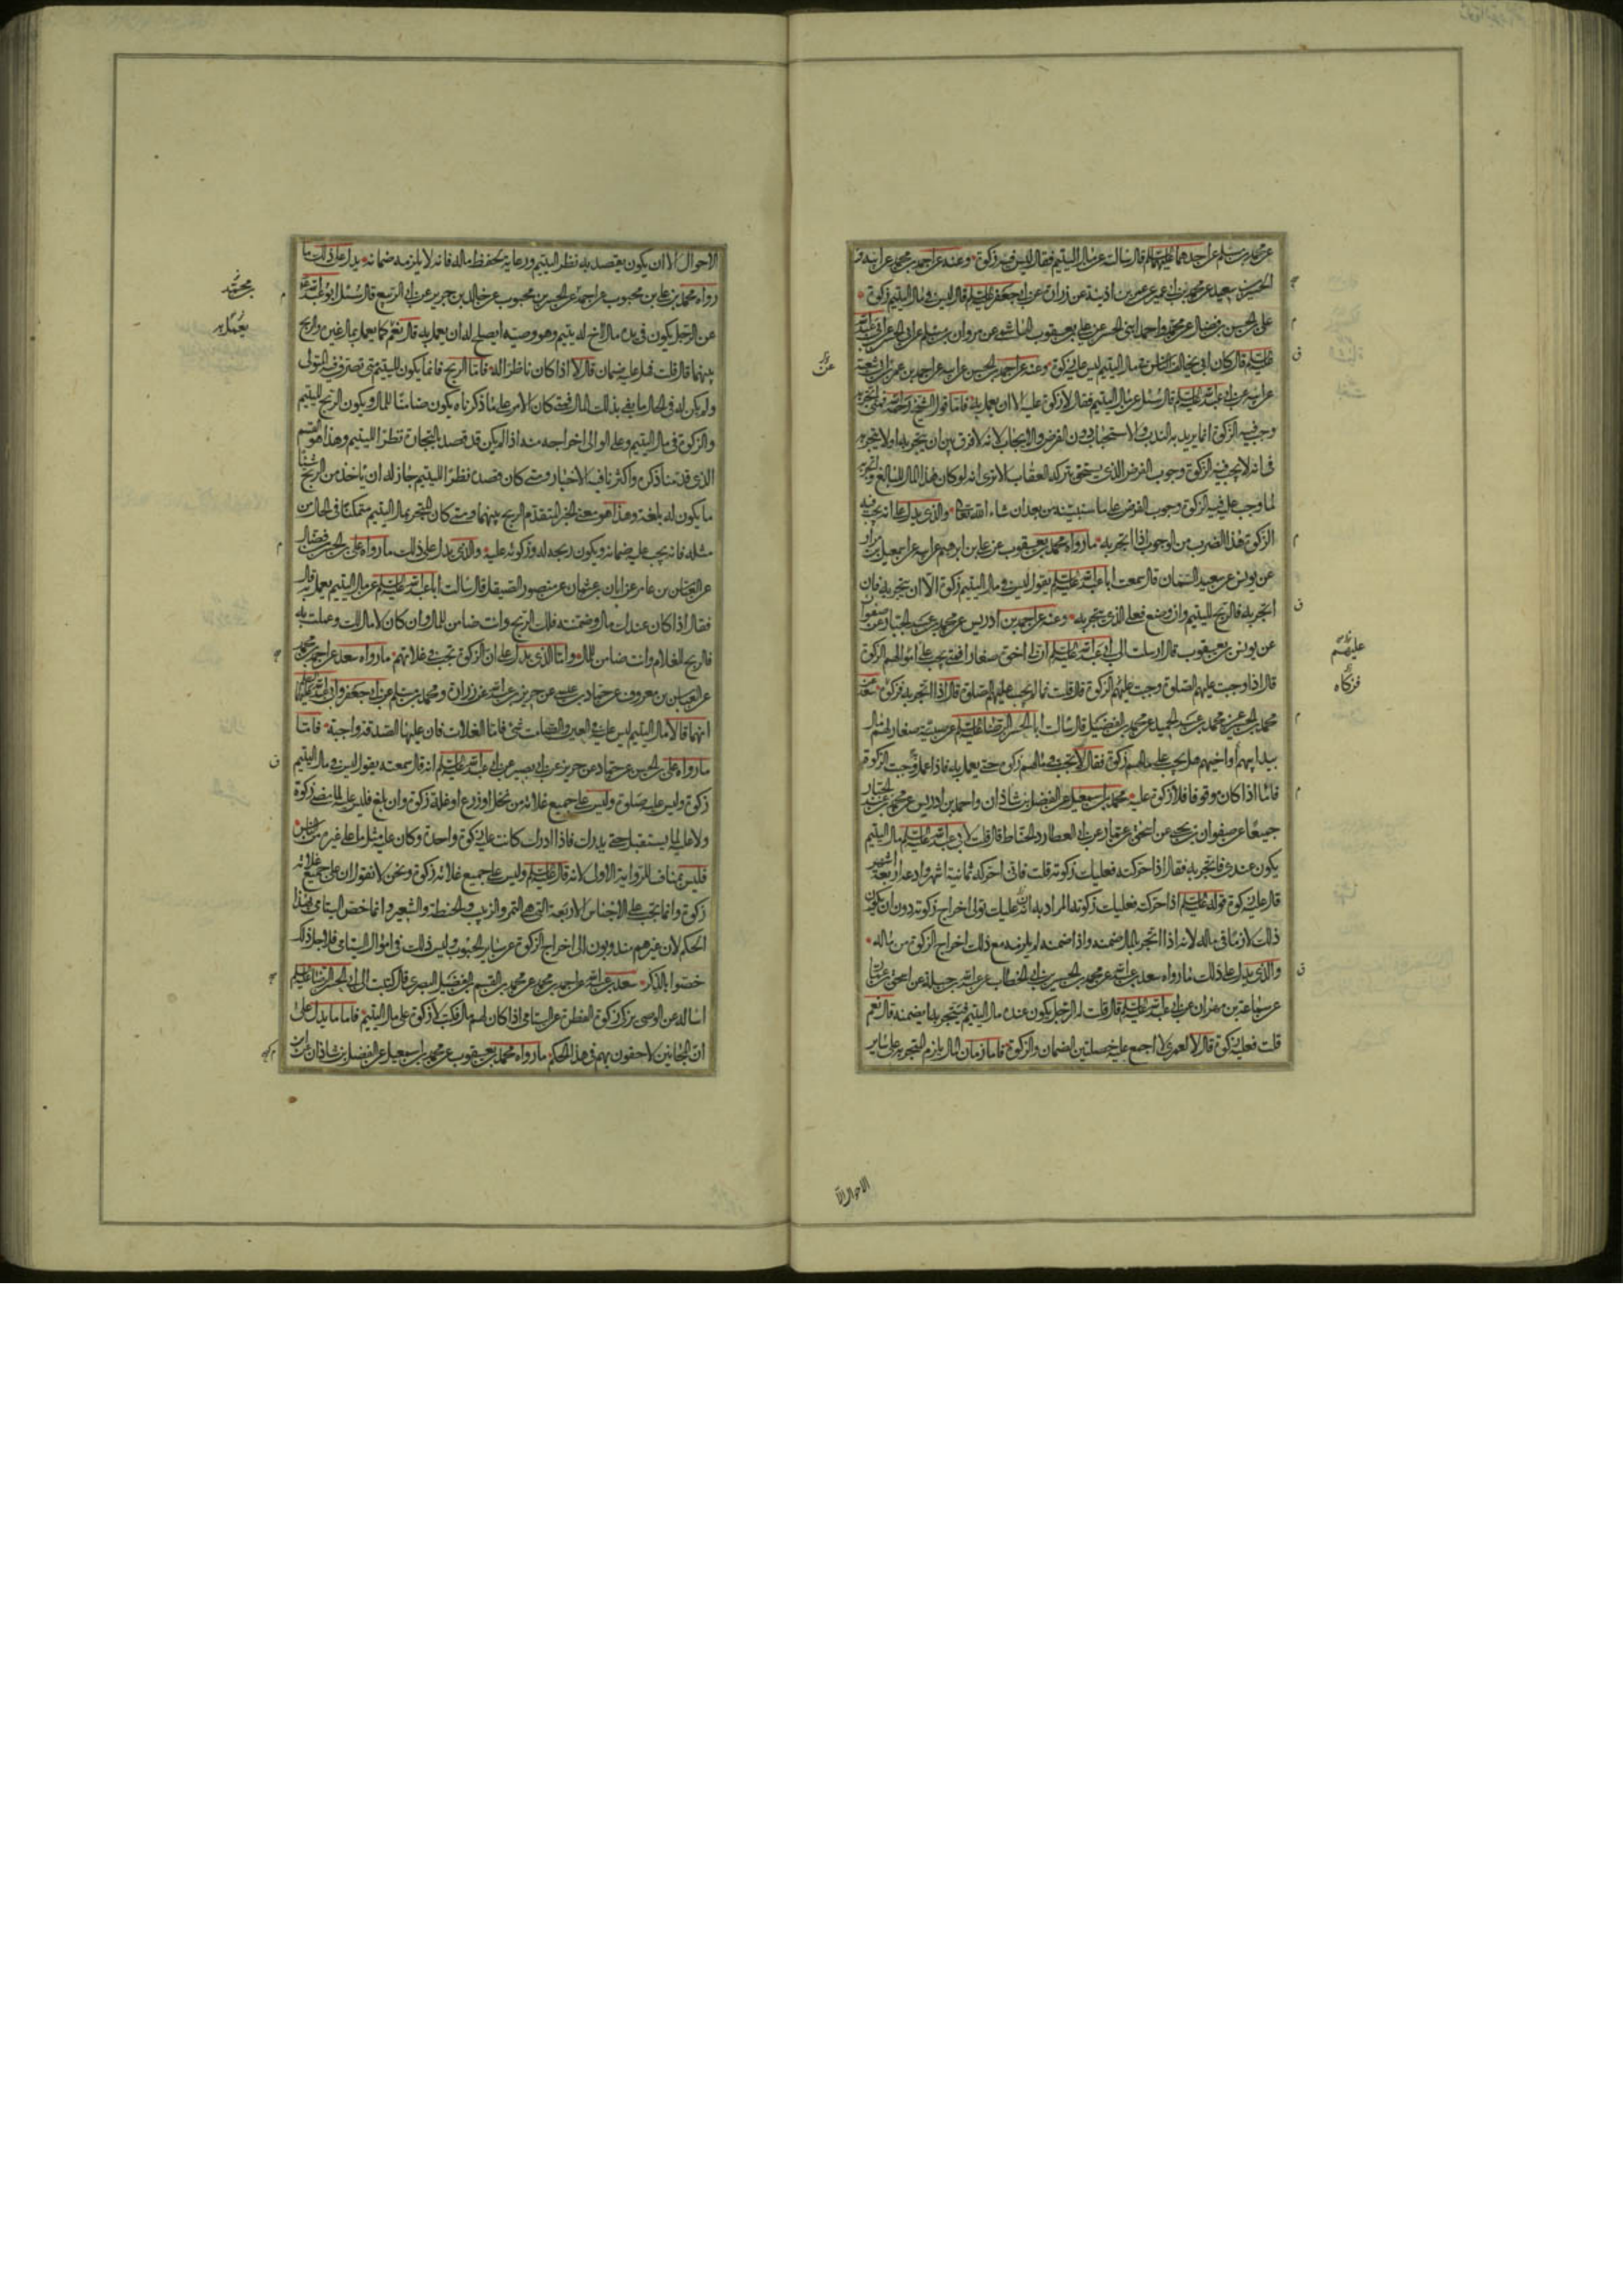 عن محمد بن مسلم عن احدهما عليهما السلم قال سالته عن مال اليتيم فقال ليس فيه زكوة وعنه عن احمد بن محمد عن ابيه و
الحسين بن سعيد عن محمد بن ابي عمير عن عمر بن اذينة عن زرارة عن ابي جعفر عليه السلم قال ليس في مال اليتيم زكوة
علي بن الحسن بن فضال عن محمد واحمد ابني الحسن عن علي بن يعقوب الهاشمي عن مروان بن مسلم عن ابي المحسن عن ابي عبد الله
عليه السلم قال كان ابي يخالف الناس في مال اليتيم ليس عليه زكوة وعنه عن احمد بن الحسين عن ابيه عن احمد بن عمر بن ابي شعبة
عن ابيه عن ابي عبد الله عليه السلم قال سئل عن مال اليتيم فقال لا زكوة عليه الا ان يعمل به فاما قول الشيخ رحمه الله فمتى اتجر به
وجب فيه الزكوة انما يريد به الندب والاستحباب دون الفرض والايجاب لانه لا فرق بين ان يتجر به او لا يتجر به
في انه لا يجب فيه الزكوة وجوب الفرض الذي يستحق بتركه العقاب الا ترى انه لو كان هذا المال للبالغ واتجر به
لما وجب عليه فيه الزكوة وجوب الفرض على ما سنبينه من بعد ان شاء الله تعالى والذي يدل على انه يجب فيه
الزكوة هذا الضرب من الوجوب اذا اتجر به ما رواه محمد بن يعقوب عن علي بن ابرهيم عن ابيه عن اسمعيل بن مرار
عن يونس عن سعيد السمان قال سمعت ابا عبد الله عليه السلم يقول ليس في مال اليتيم زكوة الا ان يتجر به فان
اتجر به فالربح لليتيم وان وضع فعلى الذي يتجر به وعنه عن احمد بن ادريس عن محمد بن عبد الجبار عن صفوان
عن يونس بن يعقوب قال ارسلت الى ابي عبد الله عليه السلم ان لي اخوة صغارا فمتى يجب على اموالهم الزكوة
قال اذا وجبت عليهم الصلوة وجبت عليهم الزكوة قال قلت فما لم يجب عليهم الصلوة قال اذا اتجر به فزكوه سعد عن
محمد بن الحسن عن محمد بن عبد الحميد عن محمد بن الفضيل قال سالت ابا الحسن الرضا عليه السلم عن صبية صغار لهم مال
بيد ابيهم او اخيهم هل يجب على مالهم زكوة فقال لا يجب في مالهم زكوة حتى يعمل به فاذا عمل وجبت الزكوة
فاما اذا كان موقوفا فلا زكوة عليه محمد بن اسمعيل عن الفضل بن شاذان واحمد بن ادريس عن محمد بن عبد الجبار
جميعا عن صفوان بن يحيى عن اسحق بن عمار عن ابي العطارد الحناط قال قلت لابي عبد الله عليه السلم مال اليتيم
يكون عندي فاتجر به فقال اذا حركته فعليك زكوته قلت فاني احركه ثمانية اشهر وادعه اربعة اشهر
قال عليك زكوة قوله عليه السلم اذا حركته فعليك زكوته المراد به ان عليك تولى اخراج زكوته دون ان يكون
ذلك لازما في ماله لانه اذا اتجر بالمال ضمنه واذا ضمنه لم يلزمه مع ذلك اخراج الزكوة من ماله
والذي يدل على ذلك ما رواه سعد بن عبد الله عن محمد بن الحسين بن ابي الخطاب عن عبد الله بن جبلة عن اسحق بن عمار
عن سماعة بن مهران عن ابي عبد الله عليه السلم قال قلت له الرجل يكون عنده مال اليتيم فيتجر به ايضمنه قال نعم
قلت فعليه زكوة قال لا لعمري لا اجمع عليه خصلتين الضمان والزكوة فاما ضمان المال يلزم المتجر به على ساير
عليهم
فزكاه
الاحوال الا
الاحوال الا ان يكون يقصد به نظر اليتيم ورعاية لحفظ ماله فانه لا يلزمه ضمانه يدل على ذلك ما
رواه محمد بن علي بن محبوب عن احمد عن الحسن بن محبوب عن خالد بن جرير عن ابي الربيع قال سئل ابو عبد الله
عن الرجل يكون في يده مال لاخ له يتيم وهو وصيه ايصلح له ان يعمل به قال نعم كما يعمل بمال غيره والربح
بينهما قال قلت فهل عليه ضمان قال لا اذا كان ناظرا له فاما الربح فانما يكون لليتيم متى تصرف فيه المتولى
ولم يكن له في الحال ما يفي بذلك المال فمتى كان الامر على ما ذكرناه يكون ضامنا للمال ويكون الربح لليتيم
والزكوة في مال اليتيم وعلى الوالى اخراجه منه اذا لم يكن قد قصد بالتجارة نظرا لليتيم وهذا هو القسم
الذي قدمنا ذكره واكثرنا فيه الاخبار ومتى كان قصده نظرا لليتيم جاز له ان ياخذ من الربح شيئا
ما يكون له بلغة وهذا هو معنى الخبر المتقدم الربح بينهما ومتى كان المتجر بمال اليتيم متمكنا في الحال من
مثله فانه يجب عليه ضمانه ويكون ربحه له وزكوته عليه والذي يدل على ذلك ما رواه علي بن الحسن بن فضال
عن العباس بن عامر عن ابان بن عثمان عن منصور الصيقل قال سالت ابا عبد الله عليه السلم عن مال اليتيم يعمل به قال
فقال اذا كان عندك مال وضمنته فلك الربح وانت ضامن للمال وان كان لا مال لك وعملت به
فالربح للغلام وانت ضامن للمال واما الذي يدل على ان الزكوة تجب في غلاتهم ما رواه سعد عن احمد بن محمد
عن العباس بن معروف عن حماد بن عيسى عن حريز بن عبد الله عن زرارة ومحمد بن مسلم عن ابي جعفر وابي عبد الله عليهما السلم
انهما قالا مال اليتيم ليس عليه في العين والصامت شئ فاما الغلات فان عليها الصدقة واجبة فاما
ما رواه علي بن الحسن عن حماد عن حريز عن ابي بصير عن ابي عبد الله عليه السلم انه قال سمعته يقول ليس في مال اليتيم
زكوة وليس عليه صلوة وليس على جميع غلاته من نخل او زرع او غلة زكوة وان بلغ فليس عليه لما مضى زكوة
ولا عليه لما يستقبل حتى يدرك فاذا ادرك كانت عليه زكوة واحدة وكان عليه مثل ما على غيره من الناس
فليس بمناف للرواية الاولى لانه قال عليه السلم وليس على جميع غلاته زكوة ونحن لا نقول ان على جميع غلاته
زكوة وانما تجب على الاجناس الاربعة التي هي التمر والزبيب والحنطة والشعير وانما خص اليتامى بهذا
الحكم لان غيرهم مندوبون الى اخراج الزكوة عن ساير الحبوب وليس ذلك في اموال اليتامى فلاجل ذلك
خصوا بالذكر سعد بن عبد الله عن احمد بن محمد عن محمد بن القسم بن الفضيل البصري قال كتبت الى ابي الحسن الرضا عليه السلم
اساله عن الوصي يزكي زكوة الفطرة عن اليتامى اذا كان لهم مال فكتب لا زكوة على مال اليتيم فاما ما يدل على
ان المجانين لاحقون بهم في هذا الحكم ما رواه محمد بن يعقوب عن محمد بن اسمعيل عن الفضل بن شاذان عن ابن
بن محمد
يعمل به